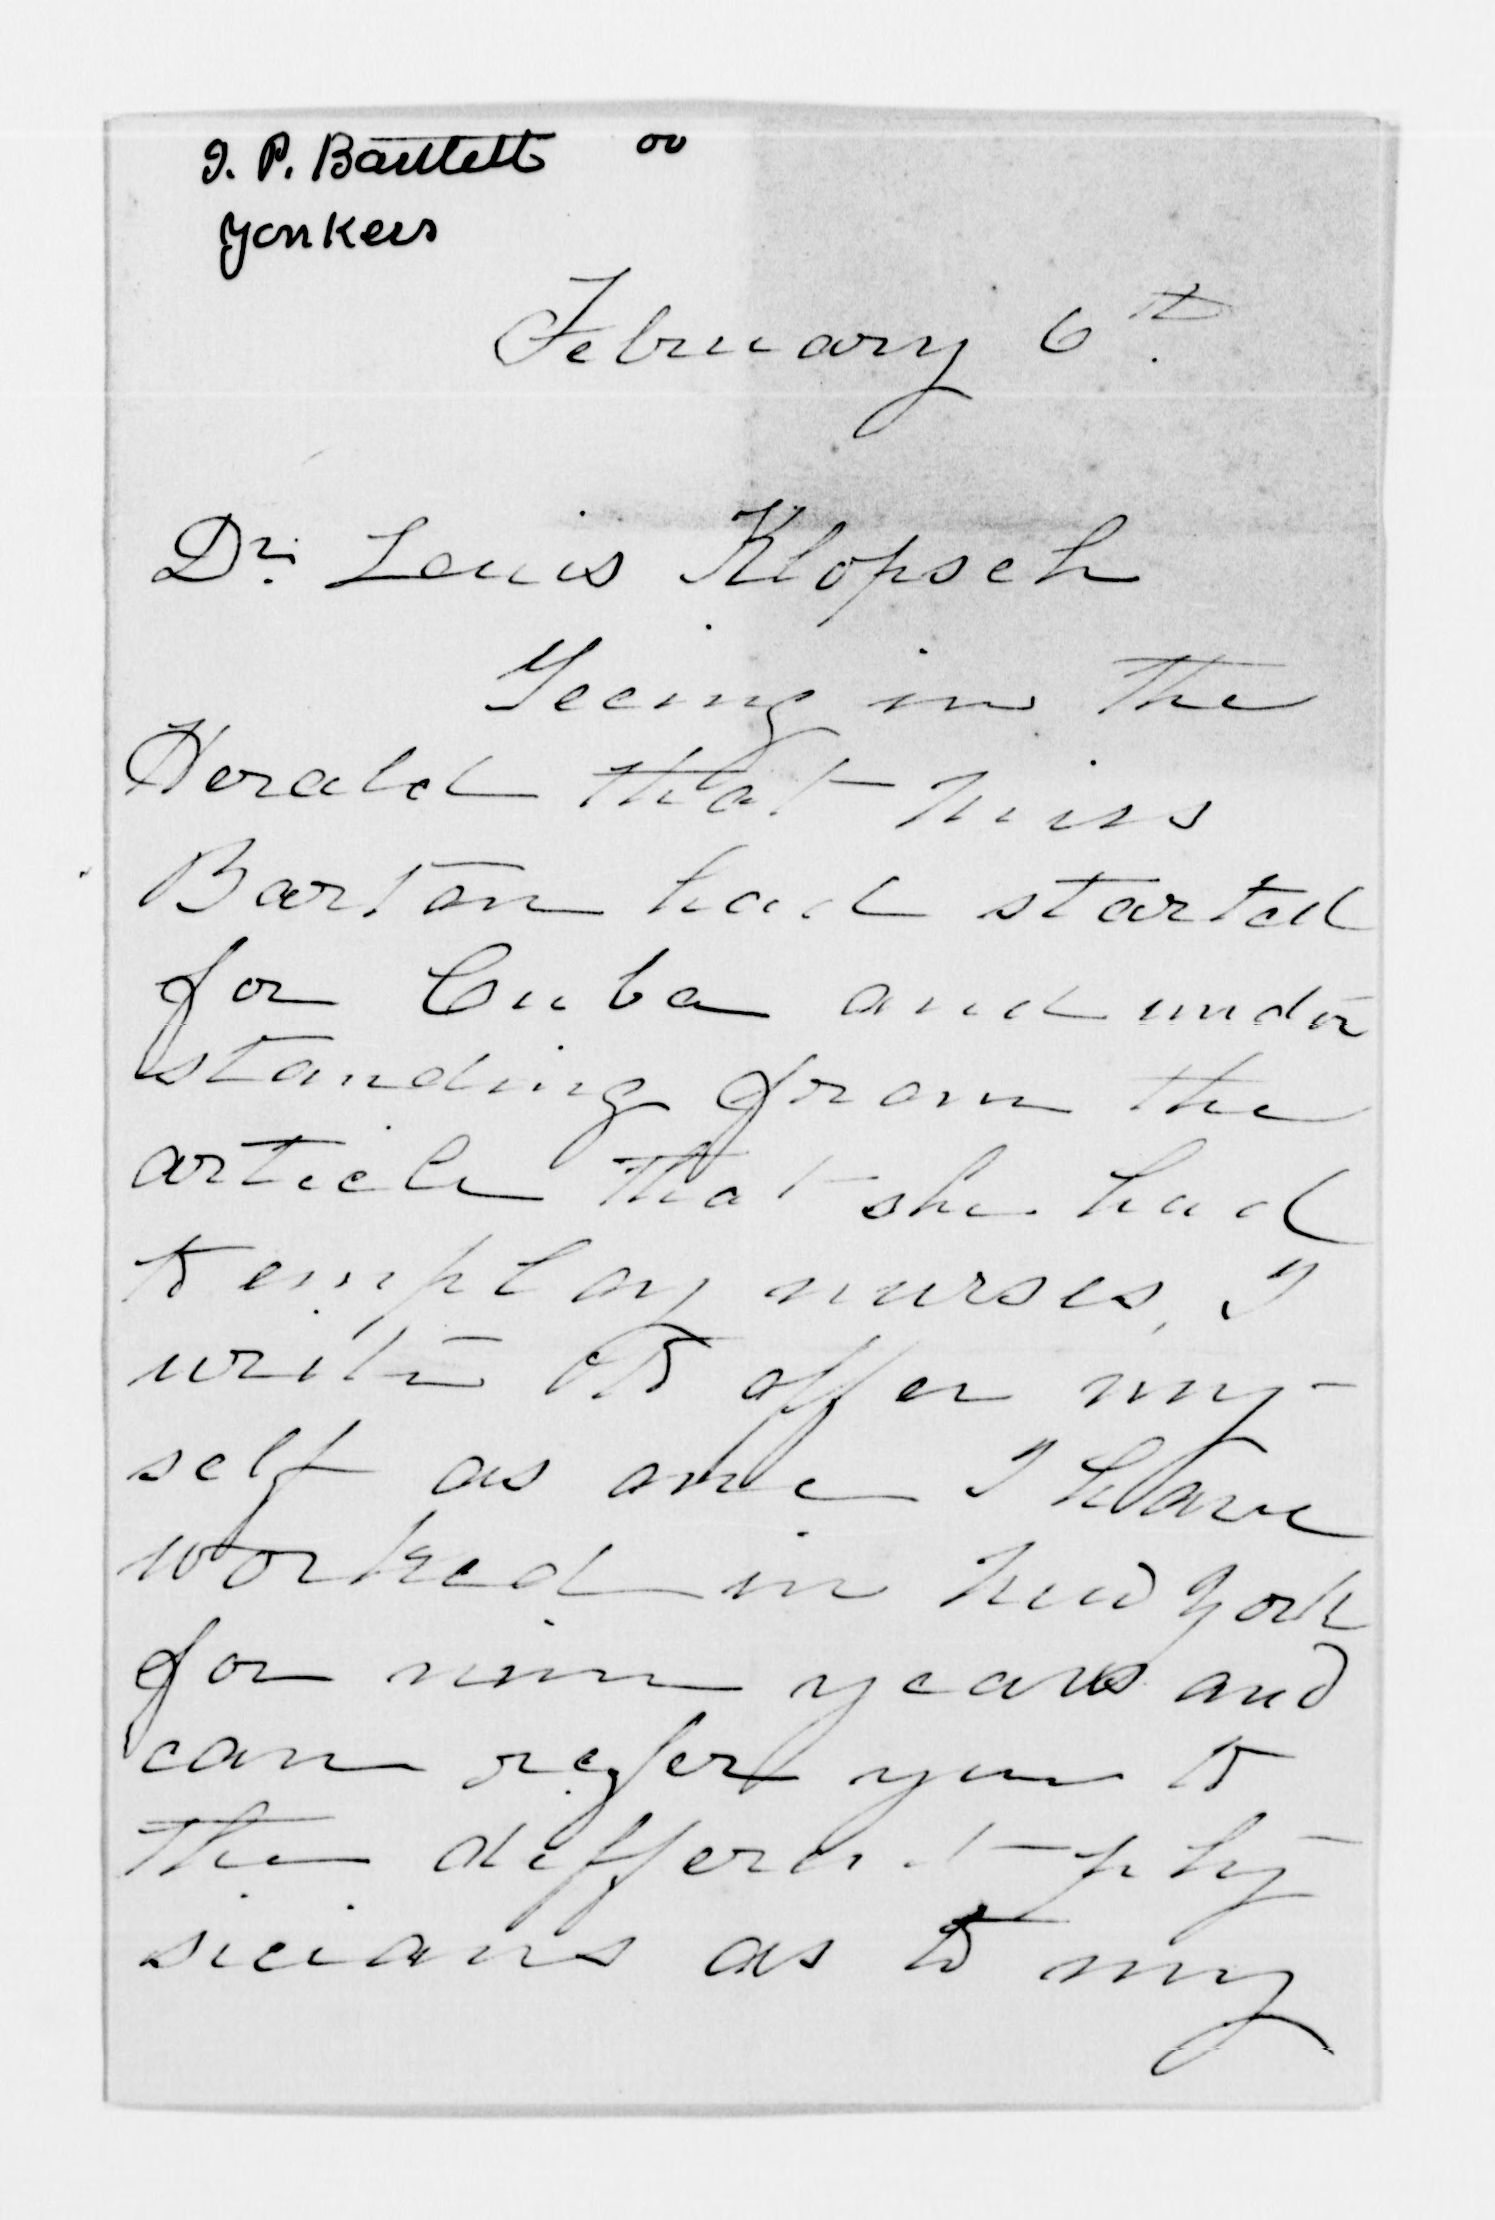 J. P. Bartlett
Yonkers
February 6th.
Dr. Louis Klopsch
Seeing in the
Herald that Miss
Barton had started
for Cuba and under
standing from the
article that she had
to employ nurses, I
write to offer my-
self as one I have
worked in New York
for nine years and
can refer you to
the different phy-
sicians as to my